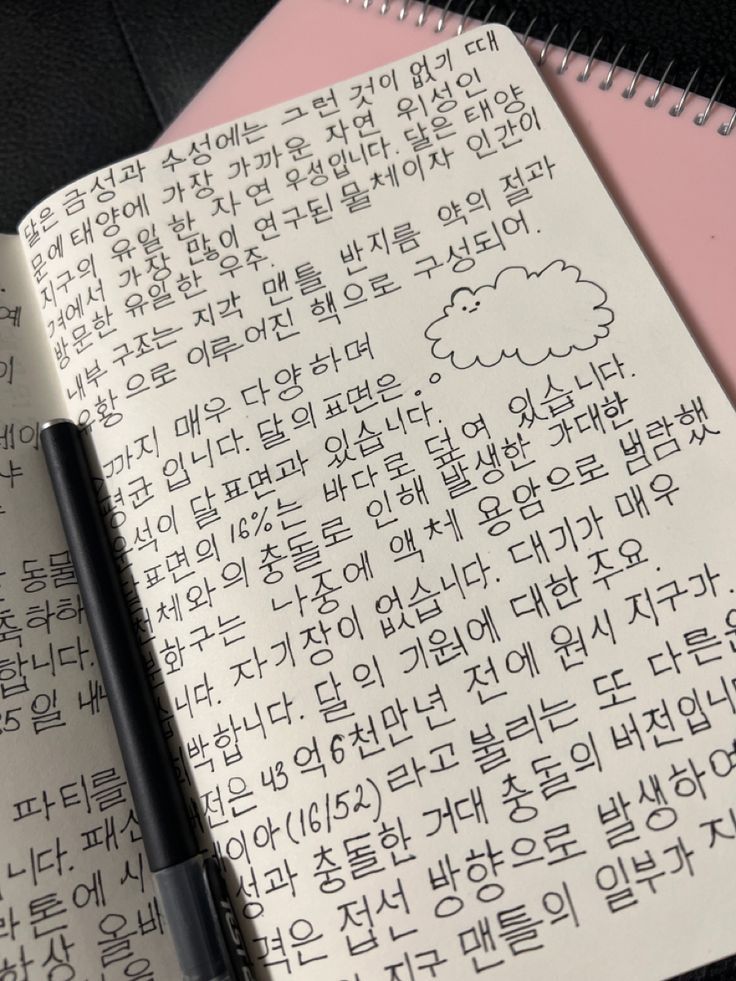 동물
축하하
합니다.
25일 내
파티를
니다. 패션
라톤에 시
항상 올바
달은 금성과 수성에는 그런 것이 없기 때
문에 태양에 가장 가까운 자연 위성인
지구의 유일한 자연 우성입니다. 달은 태양
겨에서 가장 많이 연구된 물체이자 인간이
방문한 유일한 우주.
내부 구조는 지각 맨틀 반지름 약의 절과
유황으로 이루어진 핵으로 구성되어.
까지 매우 다양하며
평균 입니다. 달의 표면은
운석이 달 표면과 있습니다.
표면의 16%는 바다로 덮여 있습니다.
천체와의 충돌로 인해 발생한 가대한
화구는 나중에 액체 용암으로 범람했
습니다. 자기장이 없습니다. 대기가 매우
박합니다. 달의 기원에 대한 주요.
전은 43억 6천만년 전에 원시 지구가.
이아(16152) 라고 불리는 또 다른
성과 충돌한 거대 충돌의 버전입니
격은 접선 방향으로 발생하여
지구 맨틀의 일부가 지